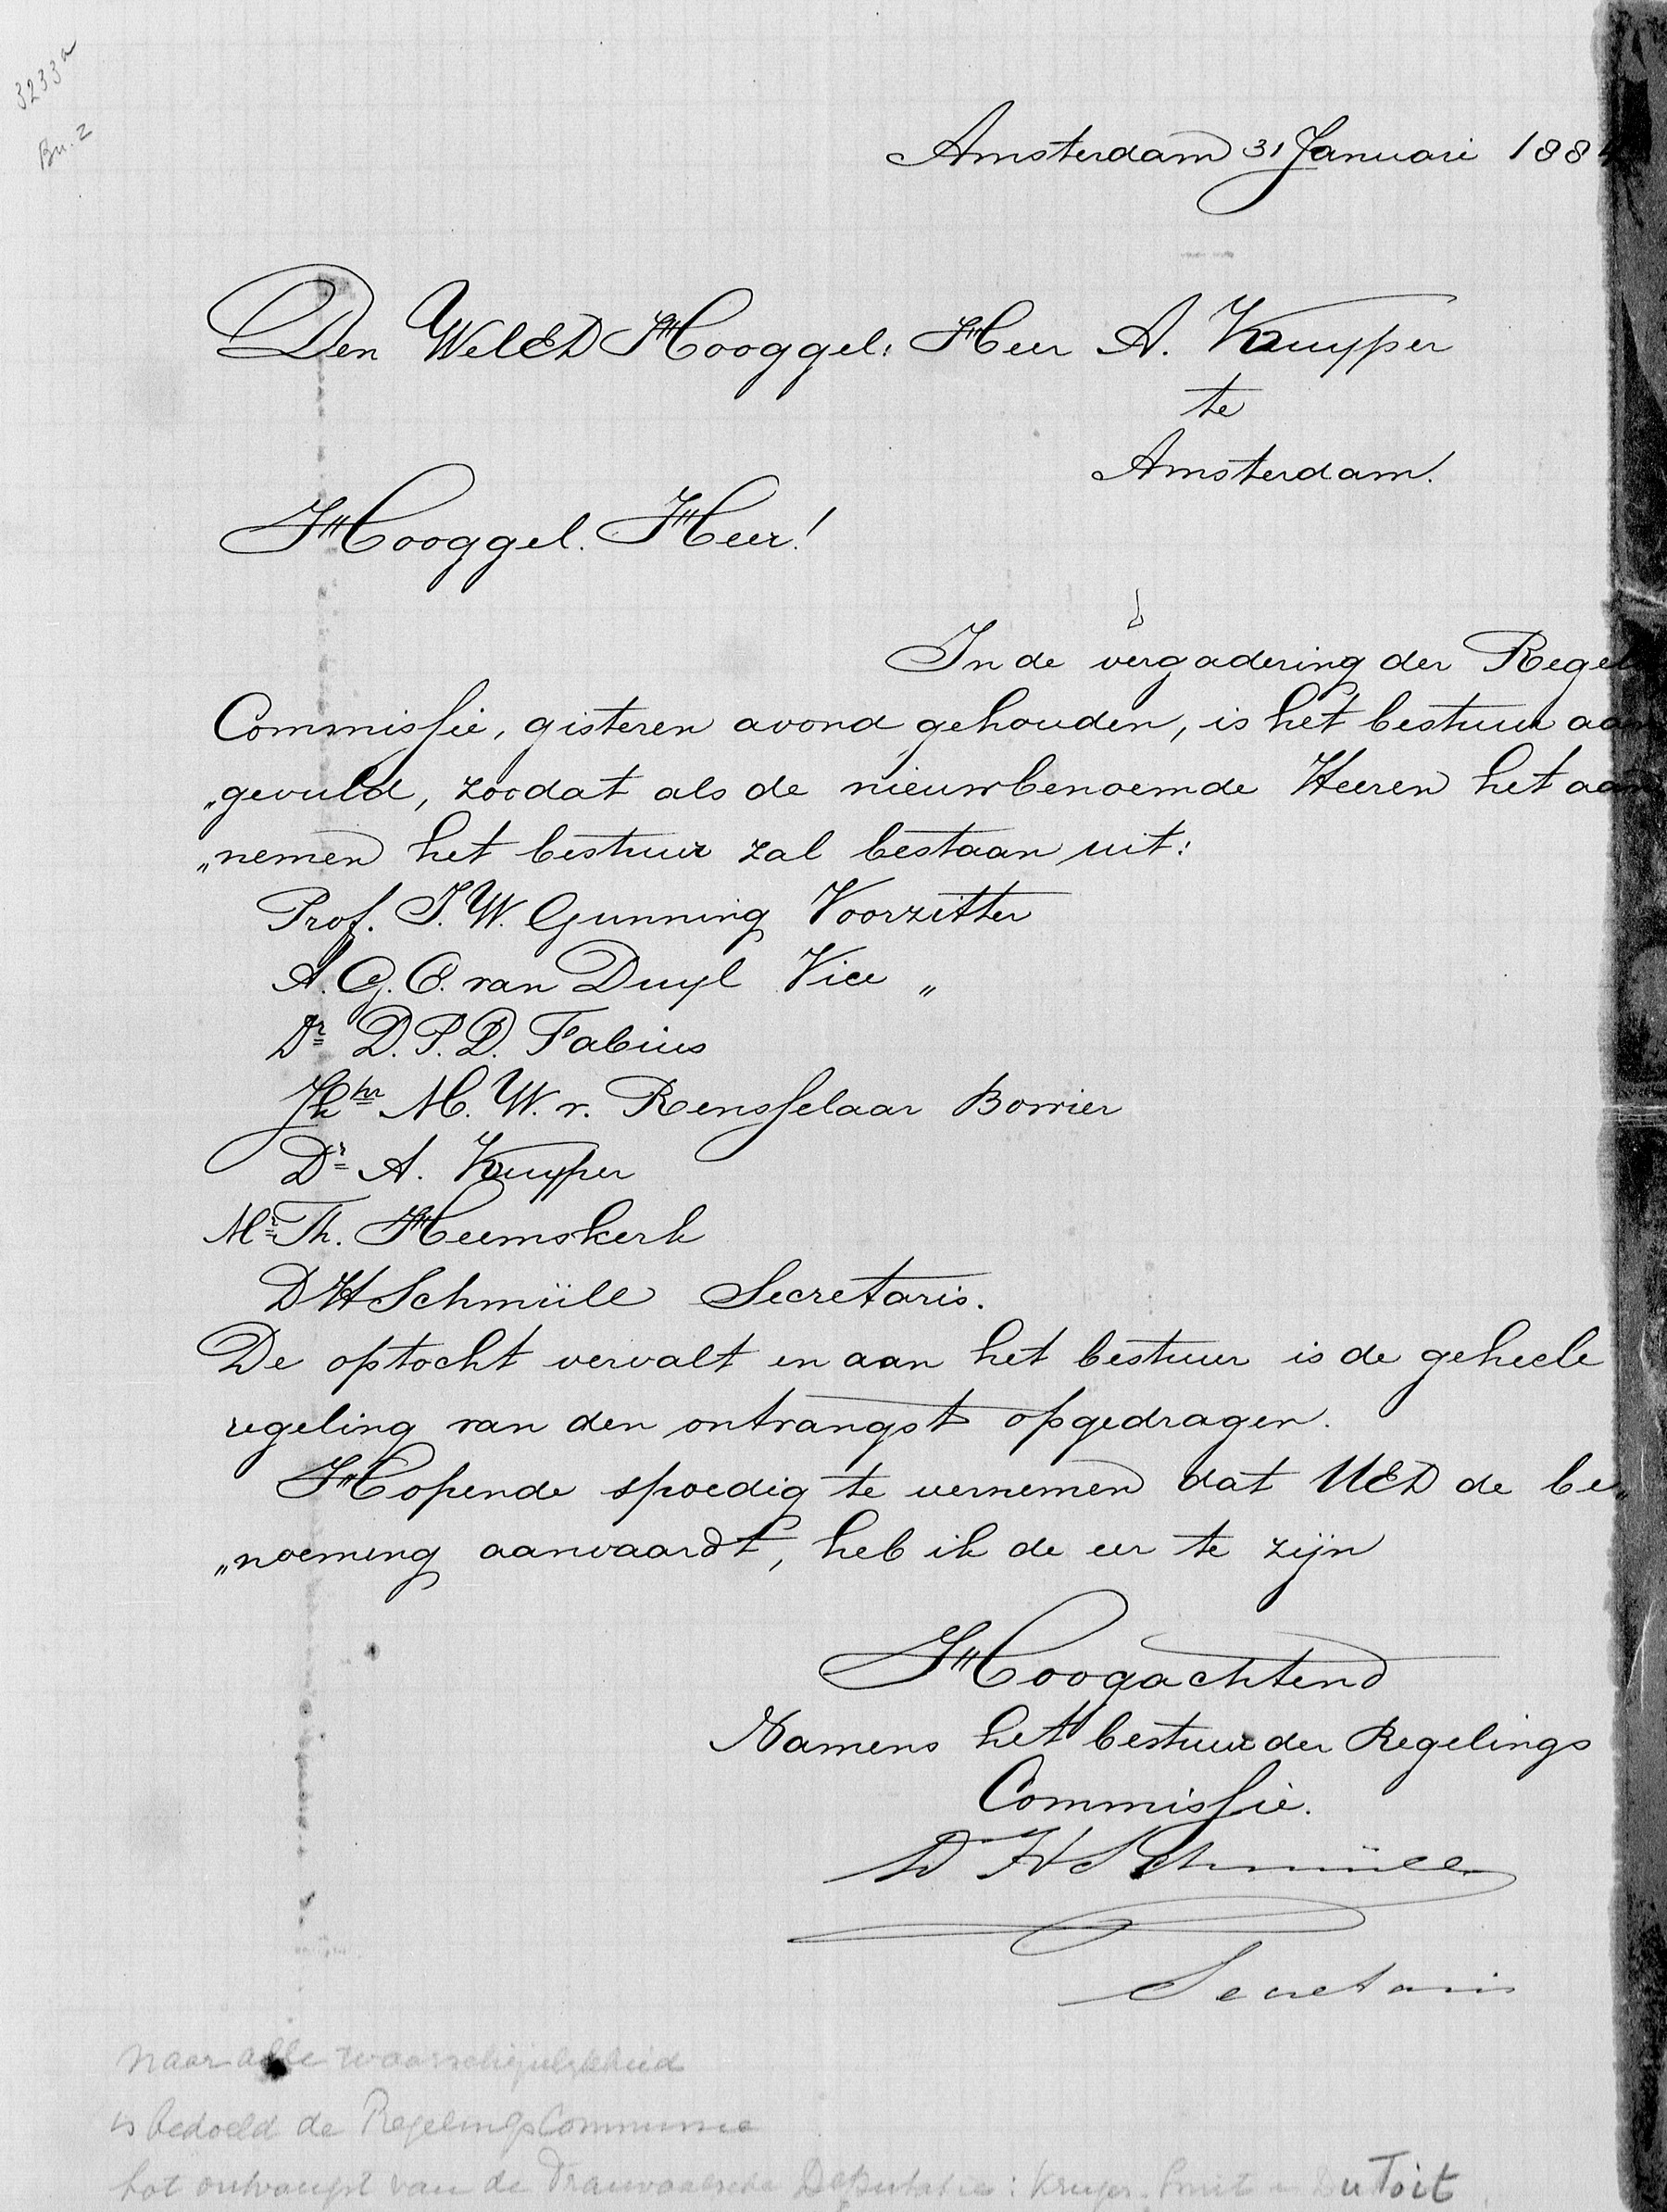 3233a
Bu. 2
Amsterdam 31 Januari 188
Den WelED Hooggel: Heer A. Kuyper
te
Amsterdam.
Hooggel. Heer!
In de vergadering der Regel
Commissie, gisteren avond gehouden, is het bestuur aan
„gevuld, zoodat als de nieuwbenoemde Heeren het aan
„nemen het bestuur zal bestaan uit:
Prof. J. W. Gunning Voorzitter
A. G. C. van Duyl Vice „
Dr D. P. D. Fabius
Jhr M. W. v. Rensselaar Bowier
Dr A. Kuyper
Mr Th. Heemskerk
D H Schmüll Secretaris.
De optocht vervalt en aan het bestuur is de geheele
regeling van den ontvangst opgedragen.
Hopende spoedig te vernemen dat UED de be„
„noeming aanvaardt, heb ik de eer te zijn
Hoogachtend
Namens het bestuur der Regelings
Commissie.
D H Schmüll
Secretaris
naar alle waarschijnlijkheid
is bedoeld de RegelingsCommissie
tot ontvangst van de Transvaalsche Deputatie: Kruger Smit en Du Toit